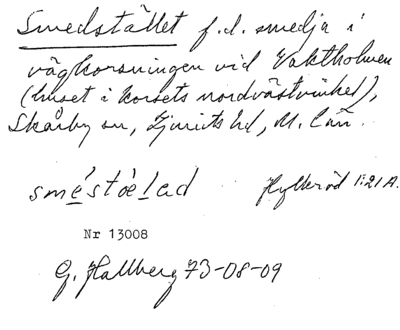 Smedstället f.d. smedja i
vägkorsningen vid Vaktholmen
(huset i korsets nordvästvinkel),
Skårby sn, Ljunits hd, M. län.
sméstöelad Hylteröd 1:21 A.
Nr 13008
G. Hallberg 73-08-09